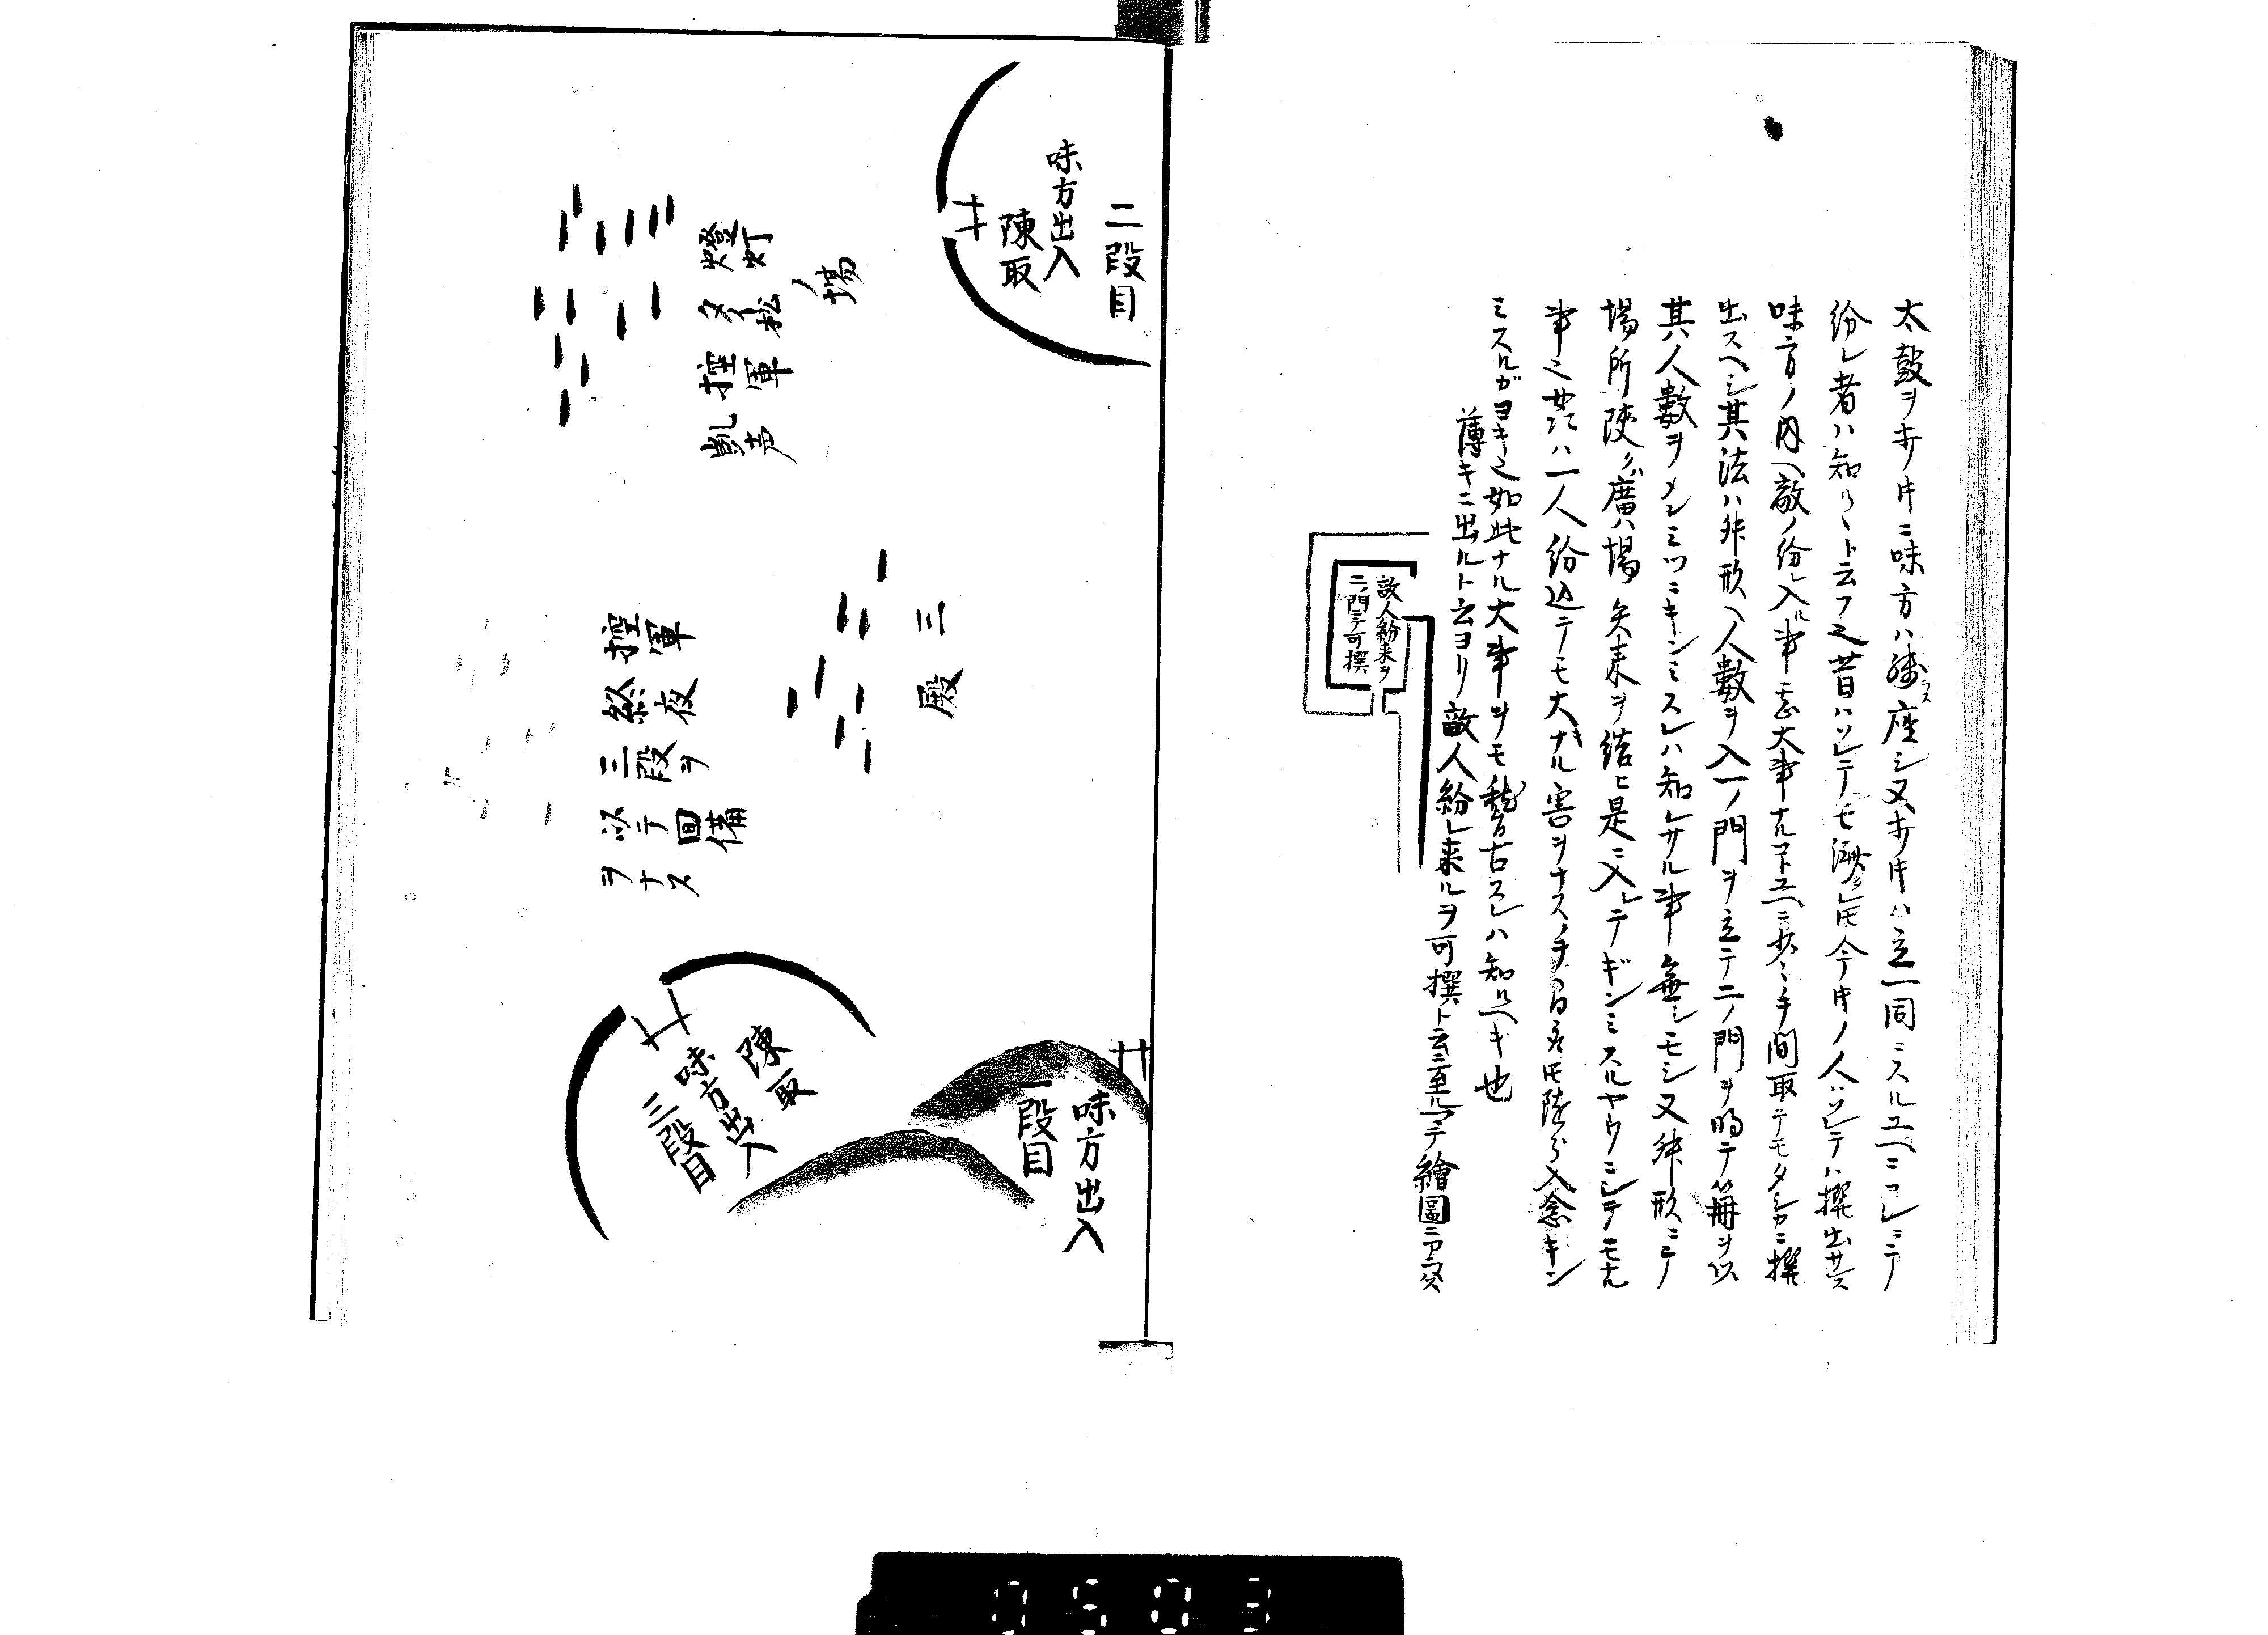 太鼓ヲキク片ニ味方ハ残ラス座シ又キク片ハ立一同ニスルユヘニコレニテ
紛レ者ハ知ルヽト云フ之昔ハソレテモ済タレ𪜈今片ノ人ハソレテハ撰出サス
味方ノ内ヘ敵ノ紛レ入ル事甚大事ナルコトユヘニ少々手間取テモタシカニ撰
出スヘシ其法ハ舛形ヘ人數ヲ入一ノ門ヲ立テ二ノ門ヲ明テ籌ヲ以
其人數ヲメシミツニキンミスレハ知レサル事無シモシ又舛形ニノ
場所陜クバ廣ハ場矢来ヲ結ヒ是ニ入レテギンミスルヤウニシテモナル
事之如此ハ一人紛込テモ大キナル害ヲナス
ミスルガヨキ之如此ナル大事ヲモ稽古スレハ知ルヘキ也
薄キニ出ルト云ヨリ敵人紛レ来ルヲ可撰ト云ニ至ルマテ繪圖ニアラハス
敵人紛来ヲ
二ノ門ニテ可撰
二段目
味方出入
陳取
場
燈灯
タイ松
控軍
凱声
三殿
控軍
終夜
三段ヲ
以テ回備
ヲナス
味方出入
一段目
陳取
味方出入
三段目
0503